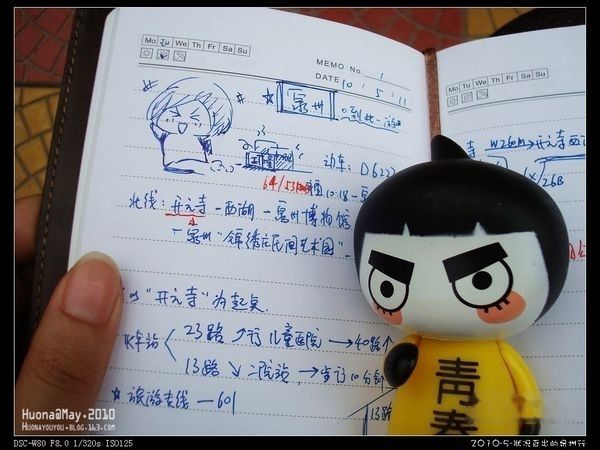 Mo Tu We Th Fr Sa Su
MEMO No. 1
DATE 10 . 5 . 11
Mo Tu We Th Fr Sa Su
泉州
到此一游
动车: D622
64/53
10:18
北线: 开元寺 - 西湖 - 泉州博物馆
- 泉州"锦绣庄民间艺术园"
以"开元寺"为起点
K车站
23路
儿童医院 → 40路
13路
二院站, → 步行10分钟
★ 旅游专线 — 601
13路
开元寺西
26B
青春
Huona@May·2010
HUONAYOUYOU·BLOG.163.COM
DSC-W80 F8.0 1/320s ISO125
2010·5·状况百出的泉州行